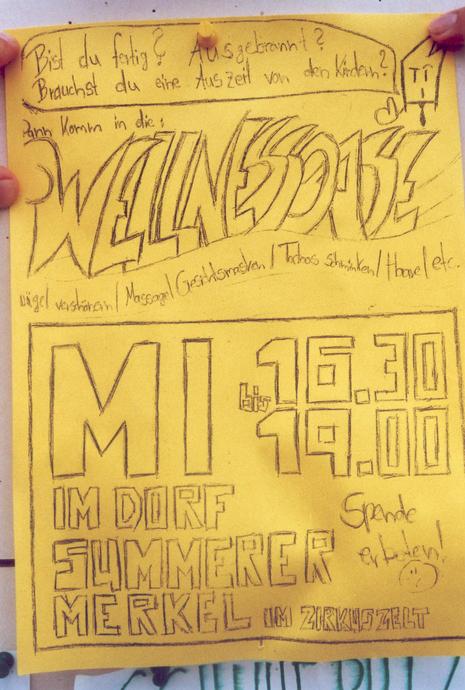 Bist du fertig? Ausgebrannt?
Brauchst du eine Auszeit von den Kindern?
TÎ
Dann Komm in die:
WELLNESSOASE
Nägel verschönern / Massage / Gesichtsmasken / Tadoos schminken / Haare / etc.
MI
16.30
bis
19.00
IM DORF
SUMMERER
MERKEL IM ZIRKUSZELT
Spende
erbeten!